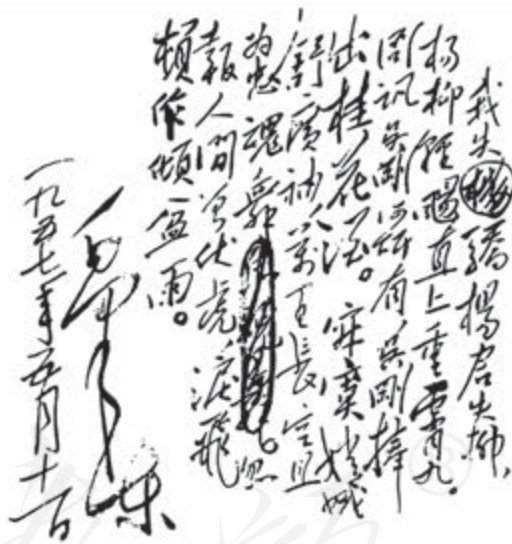 我失驕楊君失柳,
楊柳輕颺直上重霄九。
问讯吳剛何所有吳剛捧
出桂花酒。寂寞嫦娥
舒廣袖萬里長空且
为忠魂舞。忽
報人間曾伏虎淚飛
頓作傾盆雨。
毛泽东
一九五七年五月十一日